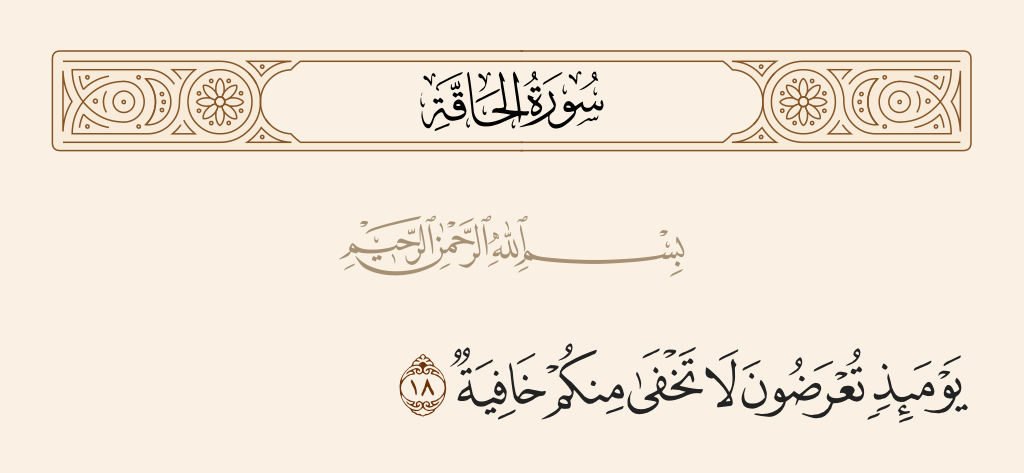 سُورَةُ الحَاقَّةِ
بِسْمِ ٱللَّهِ ٱلرَّحْمَٰنِ ٱلرَّحِيمِ
يَوْمَئِذٍ تُعْرَضُونَ لَا تَخْفَىٰ مِنكُمْ خَافِيَةٌ ١٨